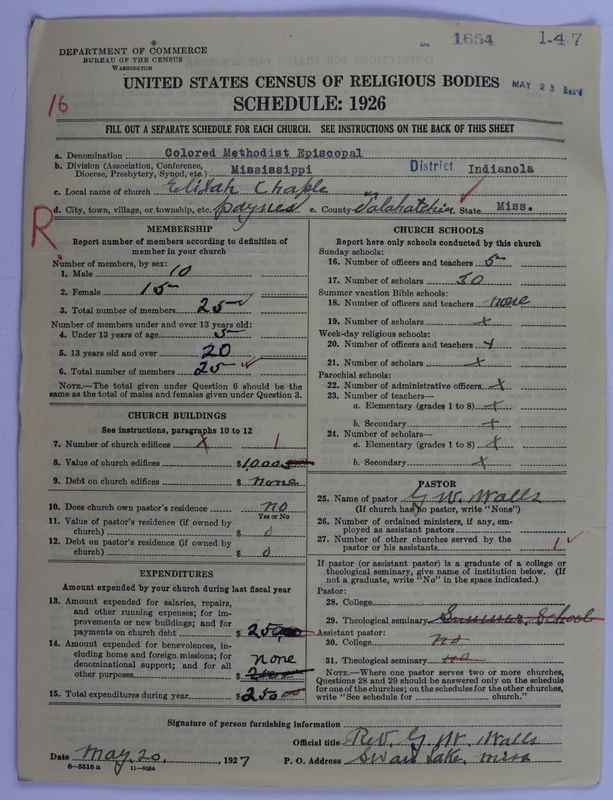 1654 1-47
DEPARTMENT OF COMMERCE
BUREAU OF THE CENSUS
WASHINGTON
UNITED STATES CENSUS OF RELIGIOUS BODIES
MAY 23 Rec'd
16
SCHEDULE: 1926
FILL OUT A SEPARATE SCHEDULE FOR EACH CHURCH. SEE INSTRUCTIONS ON THE BACK OF THIS SHEET
a. Denomination Colored Methodist Episcopal
b. Division (Association, Conference, Diocese, Presbytery, Synod, etc.) Mississippi District Indianola
c. Local name of church Elijah Chaple
d. City, town, village, or township, etc. Paynes e. County Talahatchie f. State Miss.
R
MEMBERSHIP
Report number of members according to definition of
member in your church
Number of members, by sex:
1. Male 10
2. Female 15
3. Total number of members 25
Number of members under and over 13 years old:
4. Under 13 years of age 5
5. 13 years old and over 20
6. Total number of members 25
NOTE.—The total given under Question 6 should be the
same as the total of males and females given under Question 3.
CHURCH BUILDINGS
See instructions, paragraphs 10 to 12
7. Number of church edifices x 1
8. Value of church edifices $1000
9. Debt on church edifices $ None
10. Does church own pastor's residence? no
Yes or No
11. Value of pastor's residence (if owned by
church) $ 0
12. Debt on pastor's residence (if owned by
church) $ 0
EXPENDITURES
Amount expended by your church during last fiscal year
13. Amount expended for salaries, repairs,
and other running expenses; for im-
provements or new buildings; and for
payments on church debt $ 250
14. Amount expended for benevolences, in-
cluding home and foreign missions; for
denominational support; and for all
other purposes none $
15. Total expenditures during year $ 250
CHURCH SCHOOLS
Report here only schools conducted by this church
Sunday schools:
16. Number of officers and teachers 5
17. Number of scholars 50
Summer vacation Bible schools:
18. Number of officers and teachers none
19. Number of scholars x
Week-day religious schools:
20. Number of officers and teachers x
21. Number of scholars x
Parochial schools:
22. Number of administrative officers x
23. Number of teachers—
a. Elementary (grades 1 to 8) x
b. Secondary x
24. Number of scholars—
a. Elementary (grades 1 to 8) x
b. Secondary x
PASTOR
25. Name of pastor G. W. Walls
(If church has no pastor, write "None")
26. Number of ordained ministers, if any, em-
ployed as assistant pastors
27. Number of other churches served by the
pastor or his assistants 1
If pastor (or assistant pastor) is a graduate of a college or
theological seminary, give name of institution below. (If
not a graduate, write "No" in the space indicated.)
Pastor:
28. College
29. Theological seminary Summer School
Assistant pastor:
30. College no
31. Theological seminary no
NOTE.—Where one pastor serves two or more churches,
Questions 28 and 29 should be answered only on the schedule
for one of the churches; on the schedules for the other churches,
write "See schedule for church."
Signature of person furnishing information
Official title Rev. G. W. Walls
Date May. 20, 1927 P. O. Address Swan Lake, Miss
8-5518 a 11-9264